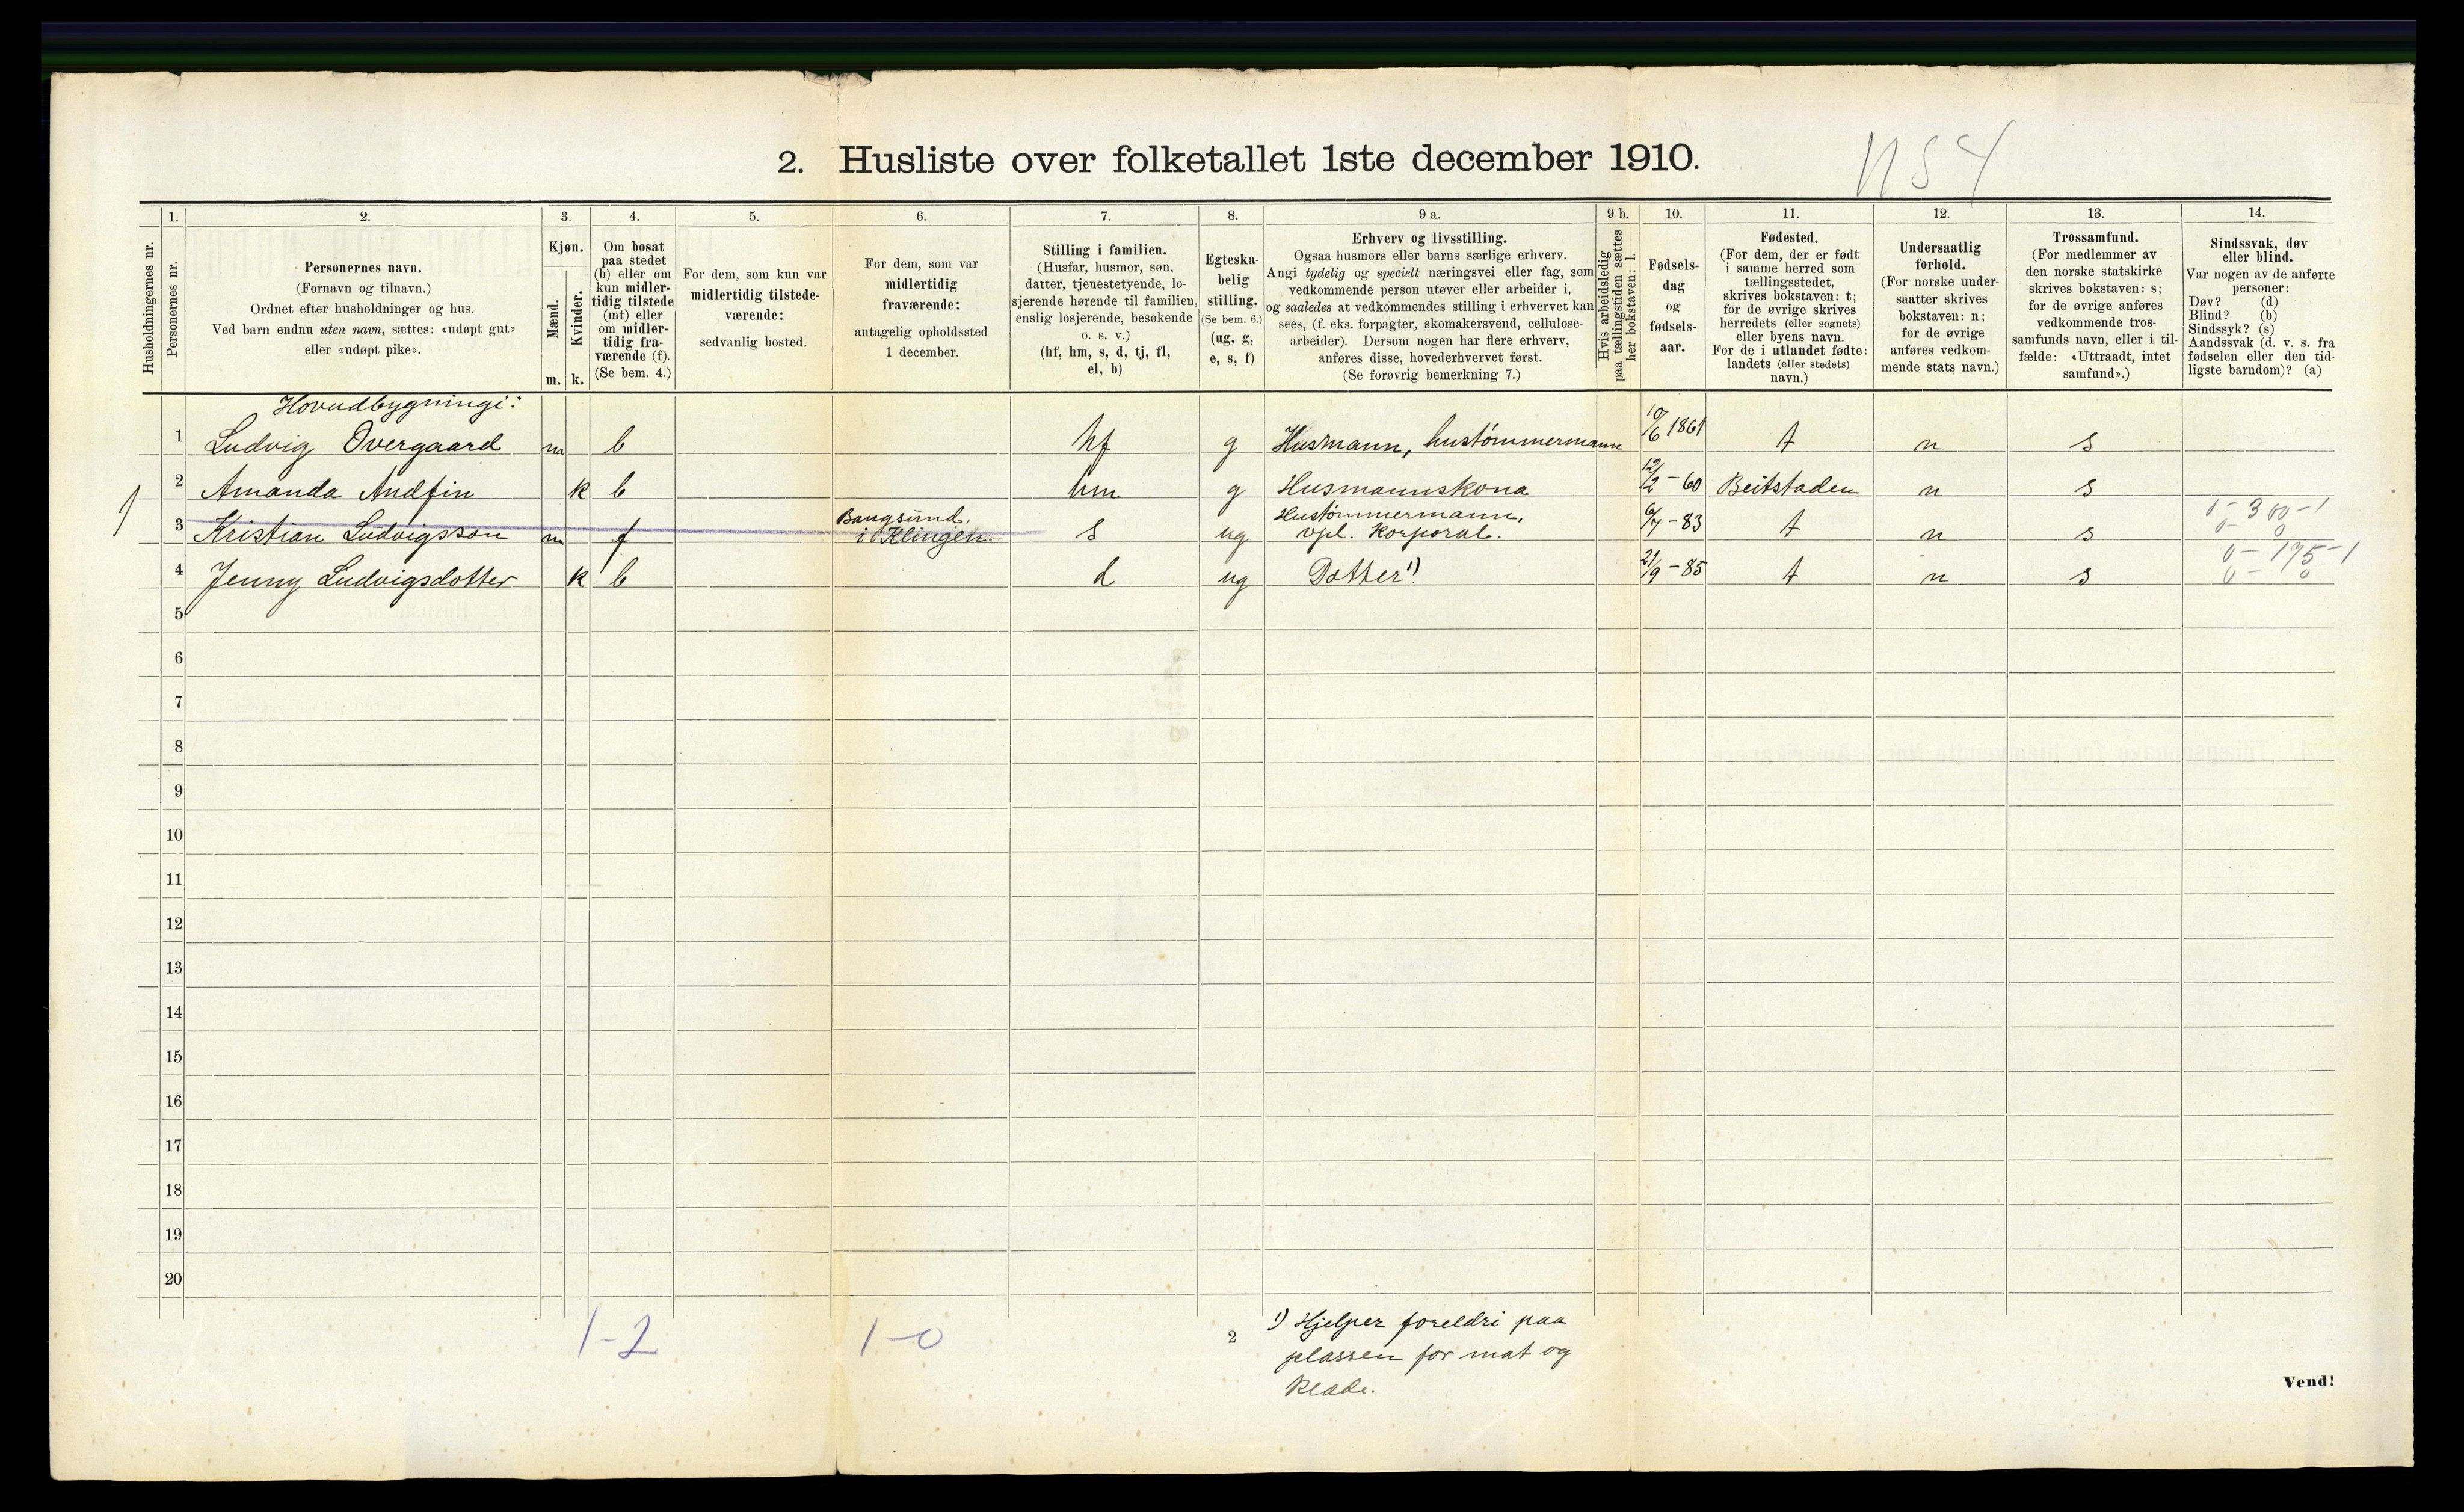 2. Husliste over folketallet 1ste december 1910.
1. 2. 3. 4. 5. 6. 7. 8. 9 a. 9 b. 10. 11. 12. 13. 14.
Husholdningernes nr.
Personernes nr.
Personernes navn.
(Fornavn og tilnavn.)
Ordnet efter husholdninger og hus.
Ved barn endnu uten navn, sættes: «udøpt gut»
eller «udøpt pike».
Kjøn.
Mænd.
Kvinder.
m. k.
Om bosat
paa stedet
(b) eller om
kun midler-
tidig tilstede
(mt) eller
om midler-
tidig fra-
værende (f).
(Se bem. 4.)
For dem, som kun var
midlertidig tilstede-
værende:
sedvanlig bosted.
For dem, som var
midlertidig
fraværende:
antagelig opholdssted
1 december.
Stilling i familien.
(Husfar, husmor, søn,
datter, tjenestetyende, lo-
sjerende hørende til familien,
enslig losjerende, besøkende
o. s. v.)
(hf, hm, s, d, tj, fl,
el, b)
Egteska-
belig
stilling.
(Se bem. 6.)
(ug, g,
e, s, f)
Erhverv og livsstilling.
Ogsaa husmors eller barns særlige erhverv.
Angi tydelig og specielt næringsvei eller fag, som
vedkommende person utøver eller arbeider i,
og saaledes at vedkommendes stilling i erhvervet kan
sees, (f. eks. forpagter, skomakersvend, cellulose-
arbeider). Dersom nogen har flere erhverv,
anføres disse, hovederhvervet først.
(Se forøvrig bemerkning 7.)
Hvis arbeidsledig
paa tællingstiden sættes
her bokstaven: l.
Fødsels-
dag
og
fødsels-
aar.
Fødested.
(For dem, der er født
i samme herred som
tællingsstedet,
skrives bokstaven: t;
for de øvrige skrives
herredets (eller sognets)
eller byens navn.
For de i utlandet fødte:
landets (eller stedets)
navn.)
Undersaatlig
forhold.
(For norske under-
saatter skrives
bokstaven: n;
for de øvrige
anføres vedkom-
mende stats navn.)
Trossamfund.
(For medlemmer av
den norske statskirke
skrives bokstaven: s;
for de øvrige anføres
vedkommende tros-
samfunds navn, eller i til-
fælde: «Uttraadt, intet
samfund».)
Sindssvak, døv
eller blind.
Var nogen av de anførte
personer:
Døv? (d)
Blind? (b)
Sindssyk? (s)
Aandssvak (d. v. s. fra
fødselen eller den tid-
ligste barndom)? (a)
Hovudbygningi:
1 Ludvig Overgaard m b hf g Husmann, hustømmermann 10/6 1861 t n s
2 Amanda Andfin k b hm g Husmannskona 12/2 - 60 Beitstaden n s
Bangsund, Hustømmermann, 0 - 300 - 1
3 Kristian Ludvigsson m f i Klingen. s ug vpl. korporal. 6/7 - 83 t n s 0 - 0
0 - 175 - 1
4 Jenny Ludvigsdotter k b d ug Dotter 1) 21/9 - 85 t n s 0 - 0
5
6
7
8
9
10
11
12
13
14
15
16
17
18
19
20
1 - 2 1 - 0 2
1) Hjelper foreldri paa
plassen for mat og
klæde.
Vend!